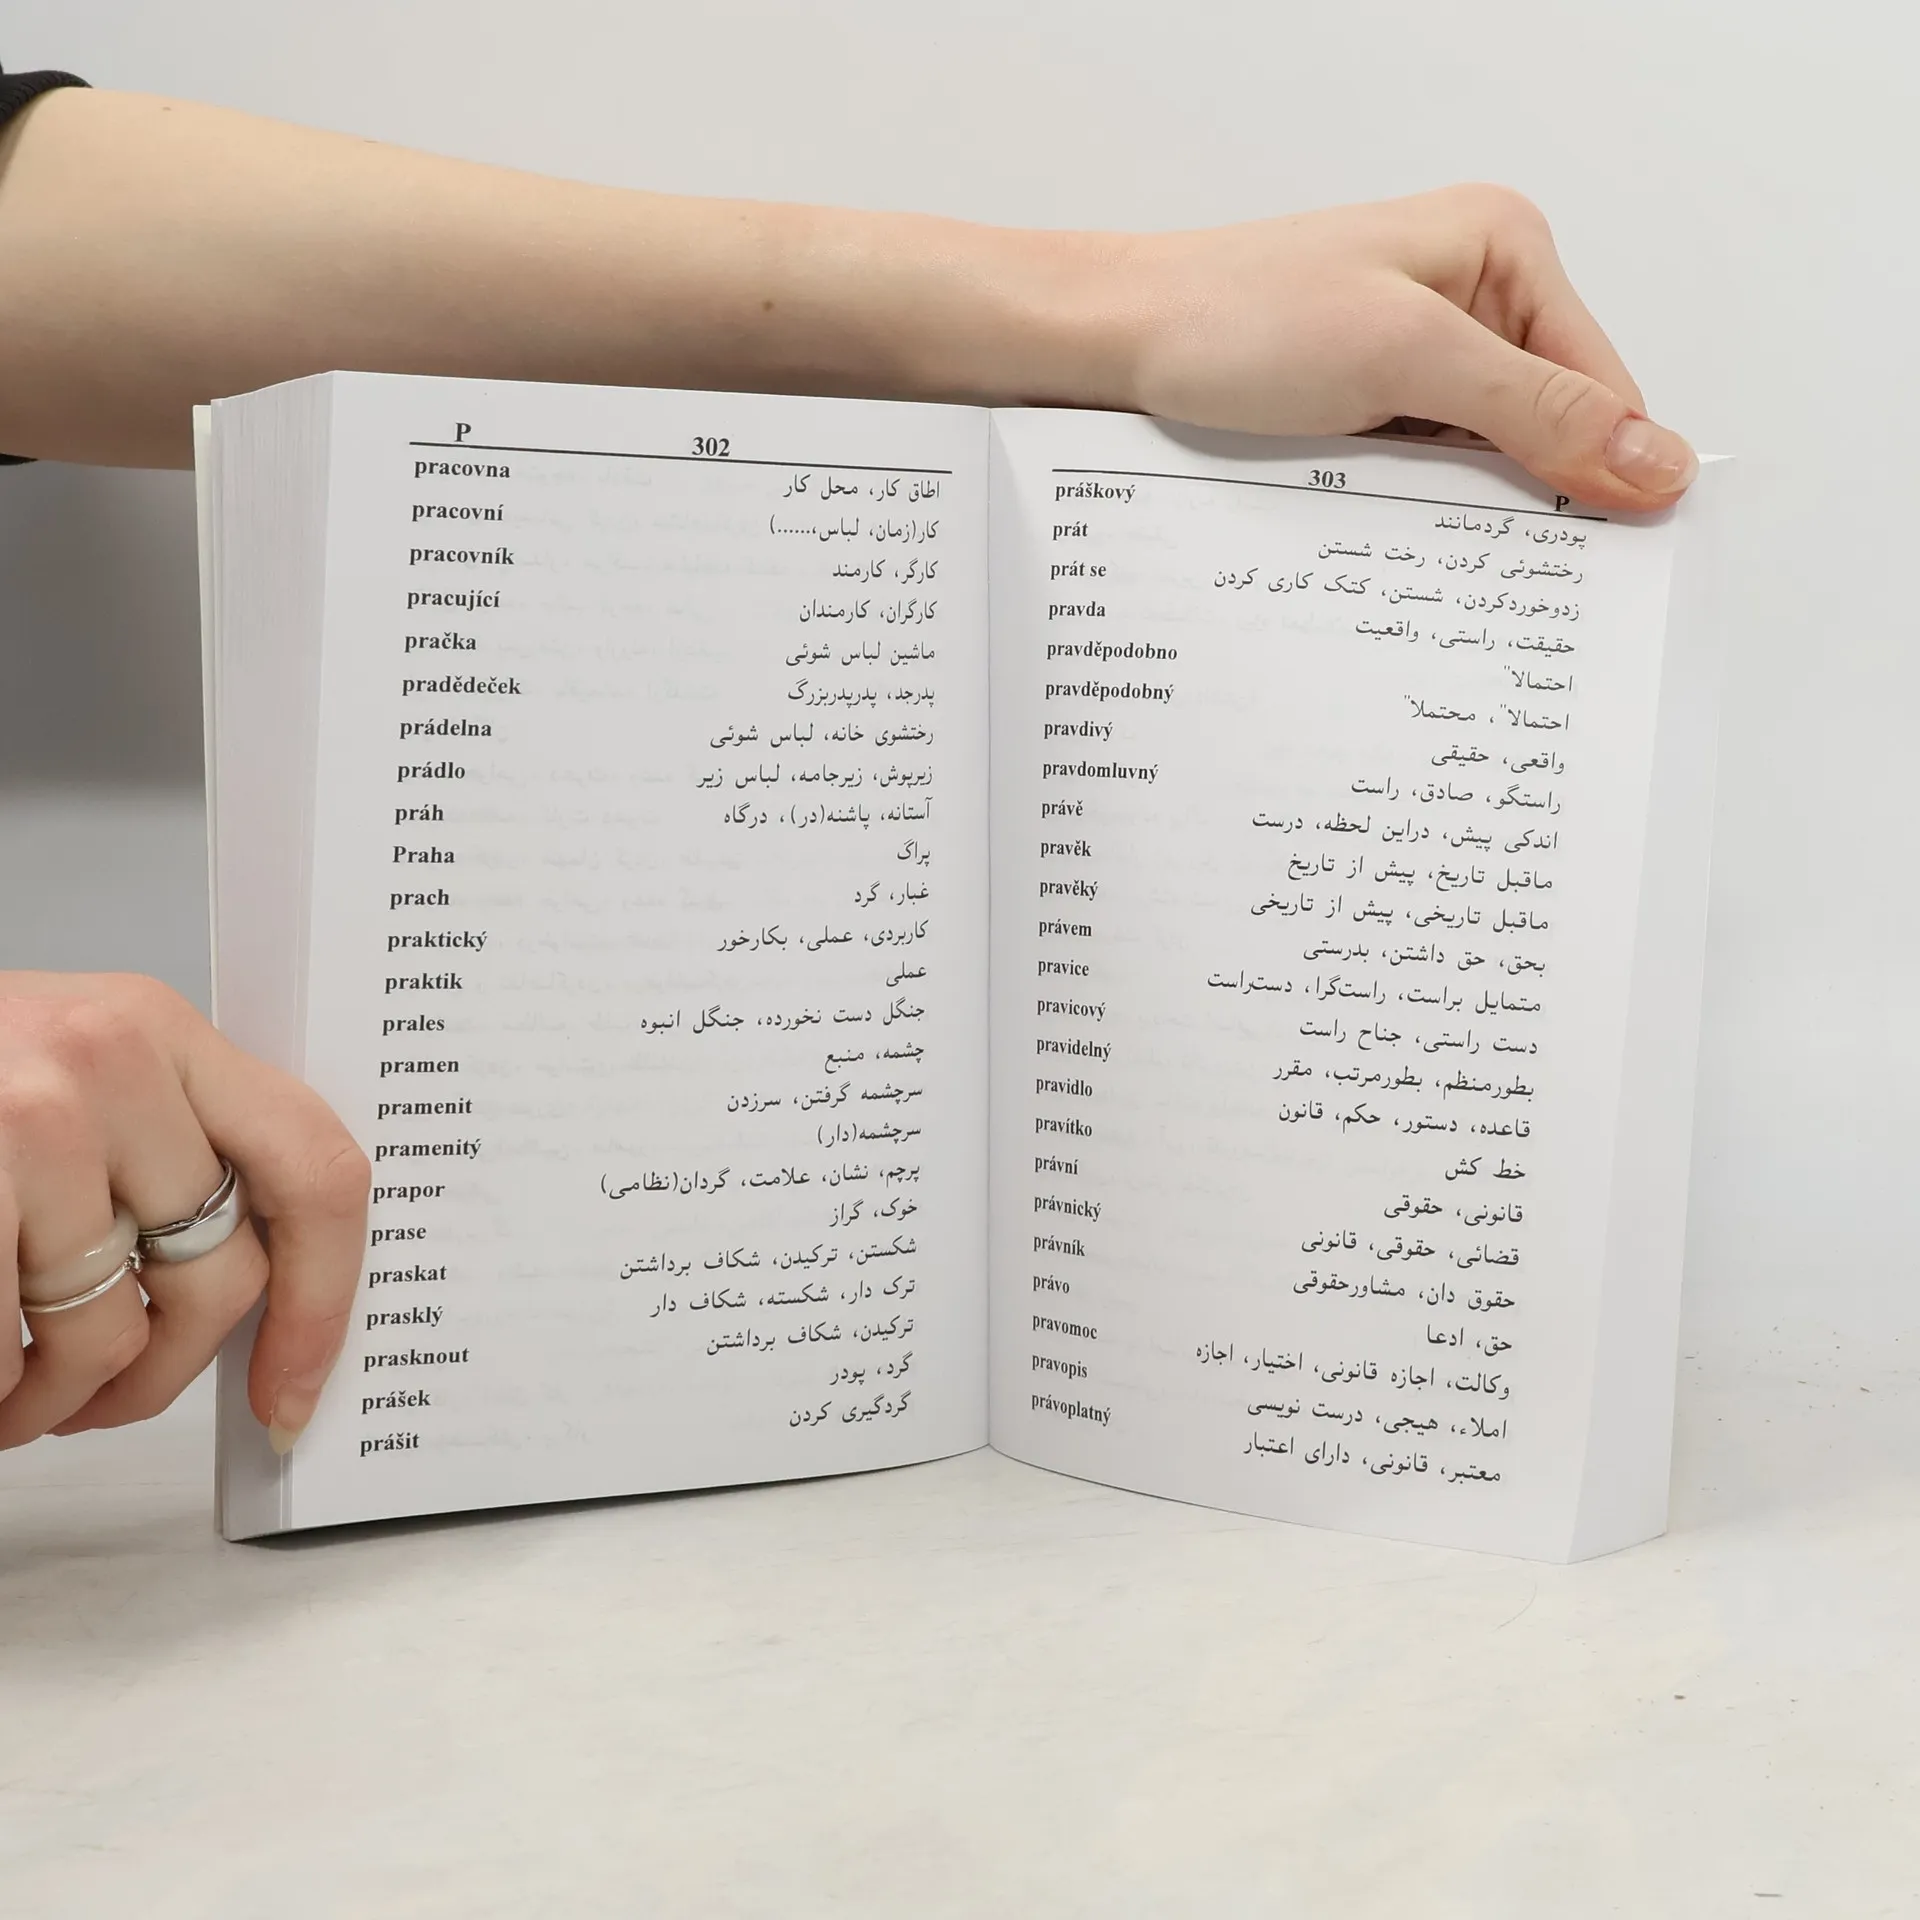 P 302
pracovna اطاق کار، محل کار
pracovní کار(زمان، لباس،......)
pracovník کارگر، کارمند
pracující کارگران، کارمندان
pračka ماشین لباس شوئی
pradědeček پدرجد، پدرپدربزرگ
prádelna رختشوی خانه، لباس شوئی
prádlo زیرپوش، زیرجامه، لباس زیر
práh آستانه، پاشنه(در)، درگاه
Praha پراگ
prach غبار، گرد
praktický کاربردی، عملی، بکارخور
praktik عملی
prales جنگل دست نخورده، جنگل انبوه
pramen چشمه، منبع
pramenit سرچشمه گرفتن، سرزدن
pramenitý سرچشمه(دار)
prapor پرچم، نشان، علامت، گردان(نظامی)
prase خوک، گراز
praskat شکستن، ترکیدن، شکاف برداشتن
prasklý ترک دار، شکسته، شکاف دار
prasknout ترکیدن، شکاف برداشتن
prášek گرد، پودر
prášit گردگیری کردن
303 P
práškový پودری، گردمانند
prát رختشوئی کردن، رخت شستن
prát se زدوخوردکردن، شستن، کتک کاری کردن
pravda حقیقت، راستی، واقعیت
pravděpodobno احتمالا"
pravděpodobný احتمالا"، محتملا"
pravdivý واقعی، حقیقی
pravdomluvný راستگو، صادق، راست
právě اندکی پیش، دراین لحظه، درست
pravěk ماقبل تاریخ، پیش از تاریخ
pravěký ماقبل تاریخی، پیش از تاریخی
právem بحق، حق داشتن، بدرستی
pravice متمایل براست، راست‌گرا، دست‌راست
pravicový دست راستی، جناح راست
pravidelný بطورمنظم، بطورمرتب، مقرر
pravidlo قاعده، دستور، حکم، قانون
pravítko خط کش
právní قانونی، حقوقی
právnický قضائی، حقوقی، قانونی
právník حقوق دان، مشاورحقوقی
právo حق، ادعا
pravomoc وکالت، اجازه قانونی، اختیار، اجازه
pravopis املاء، هیجی، درست نویسی
právoplatný معتبر، قانونی، دارای اعتبار